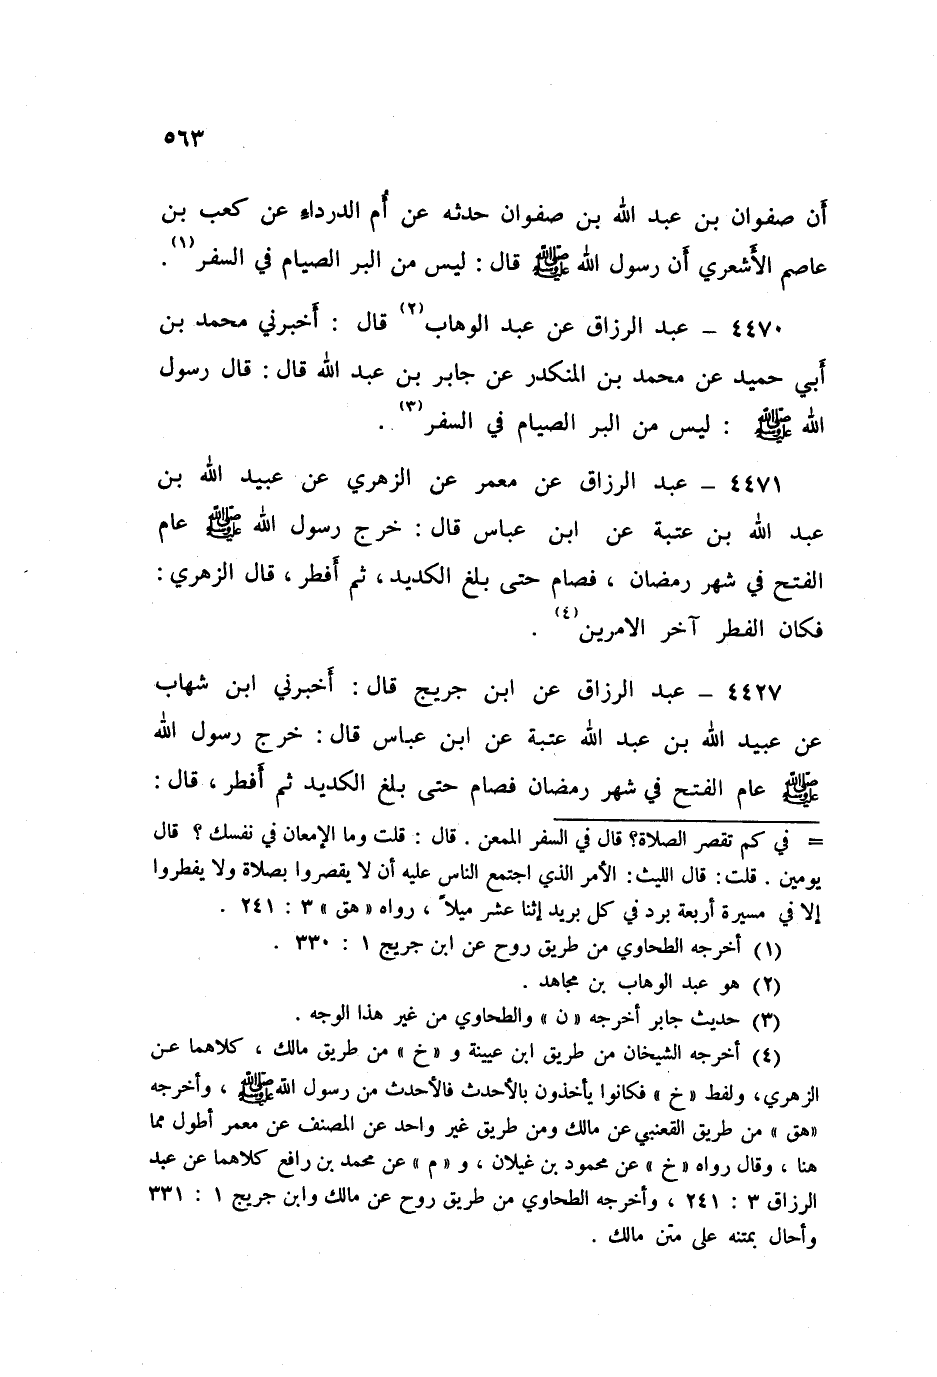 ٥٦٣
أن صفوان بن عبد الله بن صفوان حدثه عن أُم الدرداء عن كعب بن
عاصم الأَشعري أَن رسول الله ﷺ قال : ليس من البر الصيام في السفر(١) .
٤٤٧٠ – عبد الرزاق عن عبد الوهاب(٢) قال : أَخبرني محمد بن
أَبي حميد عن محمد بن المنكدر عن جابر بن عبد الله قال : قال رسول
الله ﷺ : ليس من البر الصيام في السفر(٣) .
٤٤٧١ – عبد الرزاق عن معمر عن الزهري عن عبيد الله بن
عبد الله بن عتبة عن ابن عباس قال : خرج رسول الله ﷺ عام
الفتح في شهر رمضان ، فصام حتى بلغ الكديد ، ثم أَفطر ، قال الزهري :
فكان الفطر آخر الامرين(٤) .
٤٤٢٧ – عبد الرزاق عن ابن جريج قال : أَخبرني ابن شهاب
عن عبيد الله بن عبد الله عتبة عن ابن عباس قال : خرج رسول الله
ﷺ عام الفتح في شهر رمضان فصام حتى بلغ الكديد ثم أَفطر ، قال :
= في كم تقصر الصلاة؟ قال في السفر الممعن . قال : قلت وما الإمعان في نفسك ؟ قال
يومين . قلت : قال الليث : الأمر الذي اجتمع الناس عليه أن لا يقصروا بصلاة ولا يفطروا
إلا في مسيرة أربعة برد في كل بريد إثنا عشر ميلاً ، رواه « هق » ٣ : ٢٤١ .
(١) أخرجه الطحاوي من طريق روح عن ابن جريج ١ : ٣٣٠ .
(٢) هو عبد الوهاب بن مجاهد .
(٣) حديث جابر أخرجه « ن » والطحاوي من غير هذا الوجه .
(٤) أخرجه الشيخان من طريق ابن عيينة و « خ » من طريق مالك ، كلاهما عن
الزهري ، ولفظ « خ » فكانوا يأخذون بالأحدث فالأحدث من رسول الله ﷺ ، وأخرجه
« هق » من طريق القعنبي عن مالك ومن طريق غير واحد عن المصنف عن معمر أطول مما
هنا ، وقال رواه « خ » عن محمود بن غيلان ، و « م » عن محمد بن رافع كلاهما عن عبد
الرزاق ٣ : ٢٤١ ، وأخرجه الطحاوي من طريق روح عن مالك وابن جريج ١ : ٣٣١
وأحال بمتنه على متن مالك .